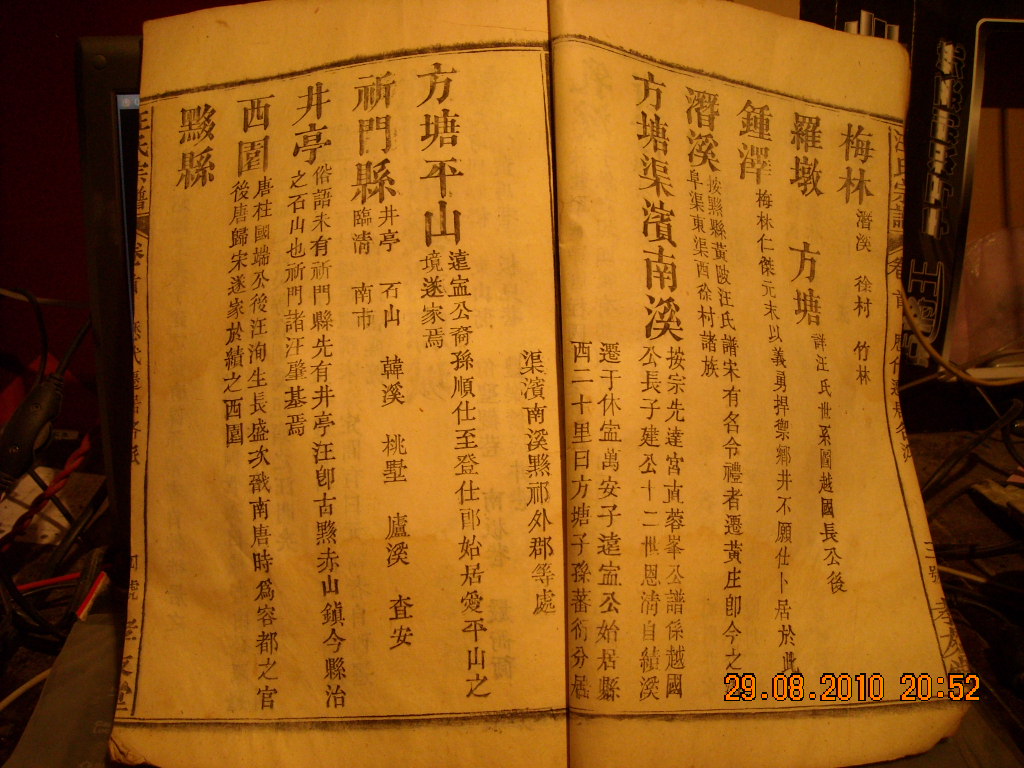 梅林 潛溪 徐村 竹林
羅墩 方塘 詳汪氏世系圖越國長公後
鍾澤 梅林仁傑元末以義勇捍禦鄉井不願仕卜居於此
潛溪 按黟縣黃陂汪氏譜宋有名令禮者遷黃庄卽今之
阜渠東渠西徐村諸族
方塘渠濱南溪 按宗先達宮直蓉峯公譜係越國
公長子建公十二世恩淸自績溪
遷于休寍萬安子遠寍公始居縣
西二十里曰方塘子孫蕃衍分居
渠濱南溪黟祁外郡等處
方塘平山 遠寍公裔孫順仕至登仕郎始居愛平山之
境遂家焉
祈門縣 井亭 石山 韓溪 桃墅 盧溪 査安
臨清 南市
井亭 俗語未有祈門縣先有井亭汪卽古黟赤山鎭今縣治
之石山也祈門諸汪肇基焉
西園 唐柱國端公後汪洵生長盛次戩南唐時爲容都之官
後唐歸宋遂家於績之西園
黟縣
汪氏宗譜
四號
29.08.2010 20:52